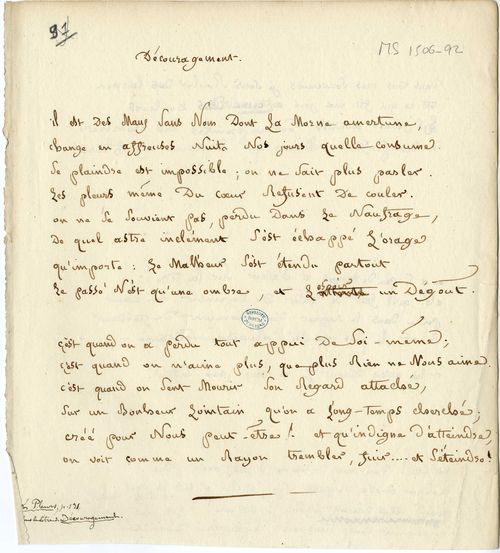 91
MS 1506-92
Découragement.
il est Des Maux Sans Nom Dont La Morne amertume,
change en affreuses Nuits Nos jours quelle consume.
Se plaindre est impossible ; on ne Sait plus parler.
Les pleurs même Du cœur Refusent De couler.
on ne Se Souvient pas, perdu Dans Le Naufrage,
De quel astre inclément S'est échappé L'orage
qu'importe : Le Malheur S'est étendu partout
Le passé N'est qu'une ombre, et L'espoir un Dégout.
c'est quand on a perdu tout appui De Soi-même ;
c'est quand on n'aime plus, que plus Rien ne Nous aime
c'est quand on Sent Mourir Son Regard attaché,
Sur un Bonheur Lointain qu'on a Long-temps cherché,
créé pour Nous peut-être ! et qu'indigne d'atteindre,
on voit comme un Rayon trembler, fuir.... et S'éteindre !
Pleurs, p.
Découragement.